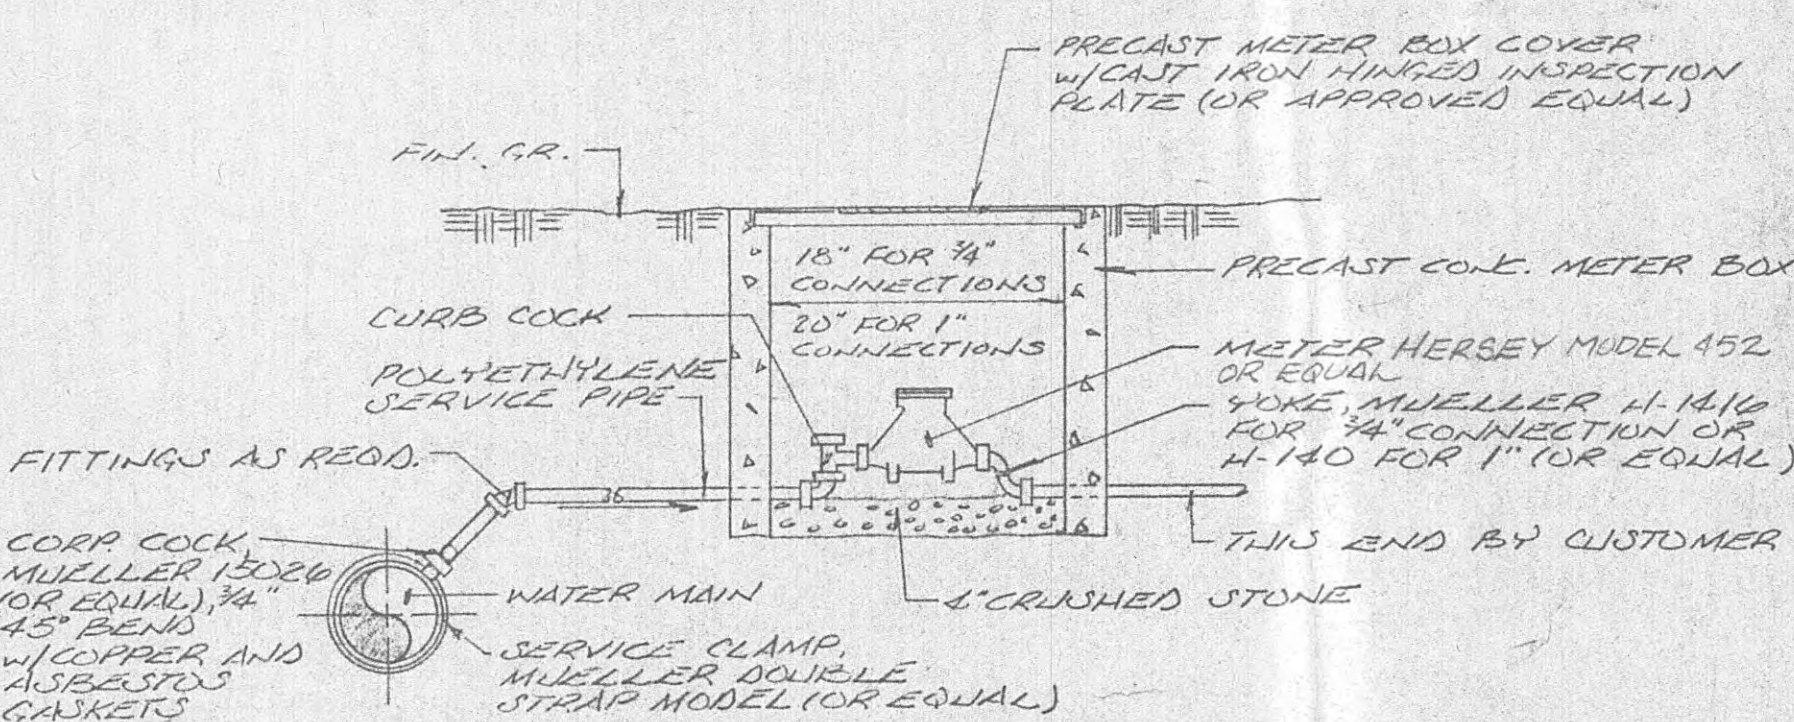 PRECAST METER BOX COVER
w/CAST IRON HINGED INSPECTION
PLATE (OR APPROVED EQUAL)
FIN. GR.
18" FOR 3/4"
CONNECTIONS
20" FOR 1"
CONNECTIONS
PRECAST CONC. METER BOX
CURB COCK
POLYETHYLENE
SERVICE PIPE
METER HERSEY MODEL 452
OR EQUAL
YOKE, MUELLER H-1416
FOR 3/4" CONNECTION OR
H-140 FOR 1" (OR EQUAL)
FITTINGS AS REQD.
THIS END BY CUSTOMER
CORP. COCK,
MUELLER 15026
(OR EQUAL), 3/4"
45° BEND
w/COPPER AND
ASBESTOS
GASKETS
WATER MAIN
4" CRUSHED STONE
SERVICE CLAMP,
MUELLER DOUBLE
STRAP MODEL (OR EQUAL)